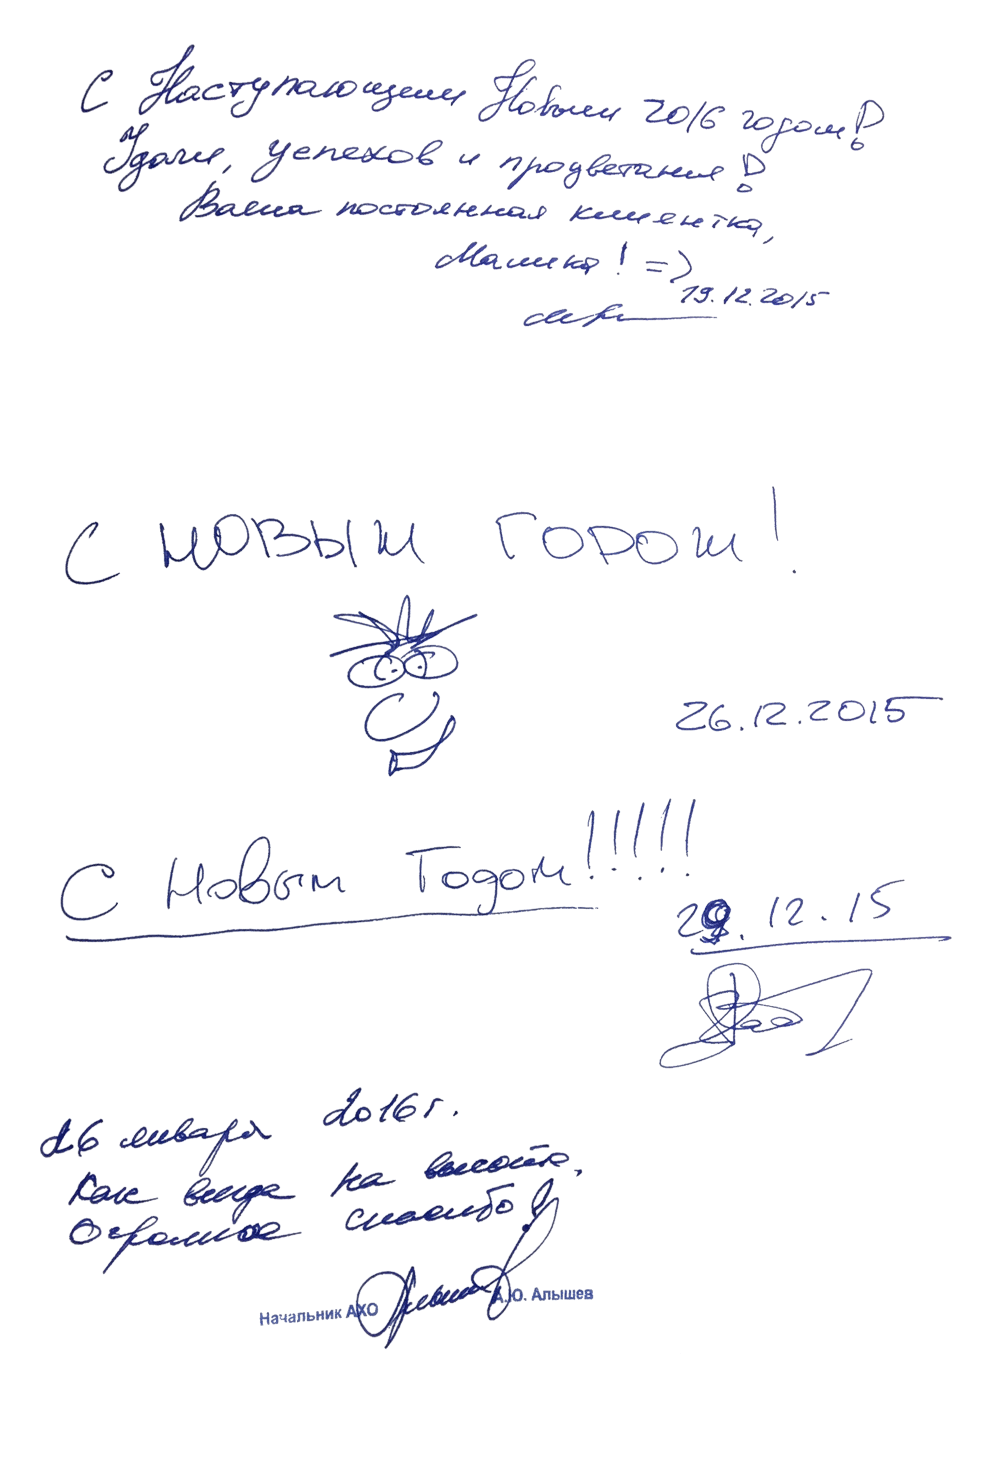 С Наступающим Новым 2016 годом!
Удачи, успехов и процветания!
Ваша постоянная клиентка,
Малика! =)
19.12.2015
С НОВЫМ ГОДОМ!
26.12.2015
С Новым Годом!!!!!
29.12.15
26 января 2016 г.
Как всегда на высоте.
Огромное спасибо!
Начальник АХО А.Ю. Алышев